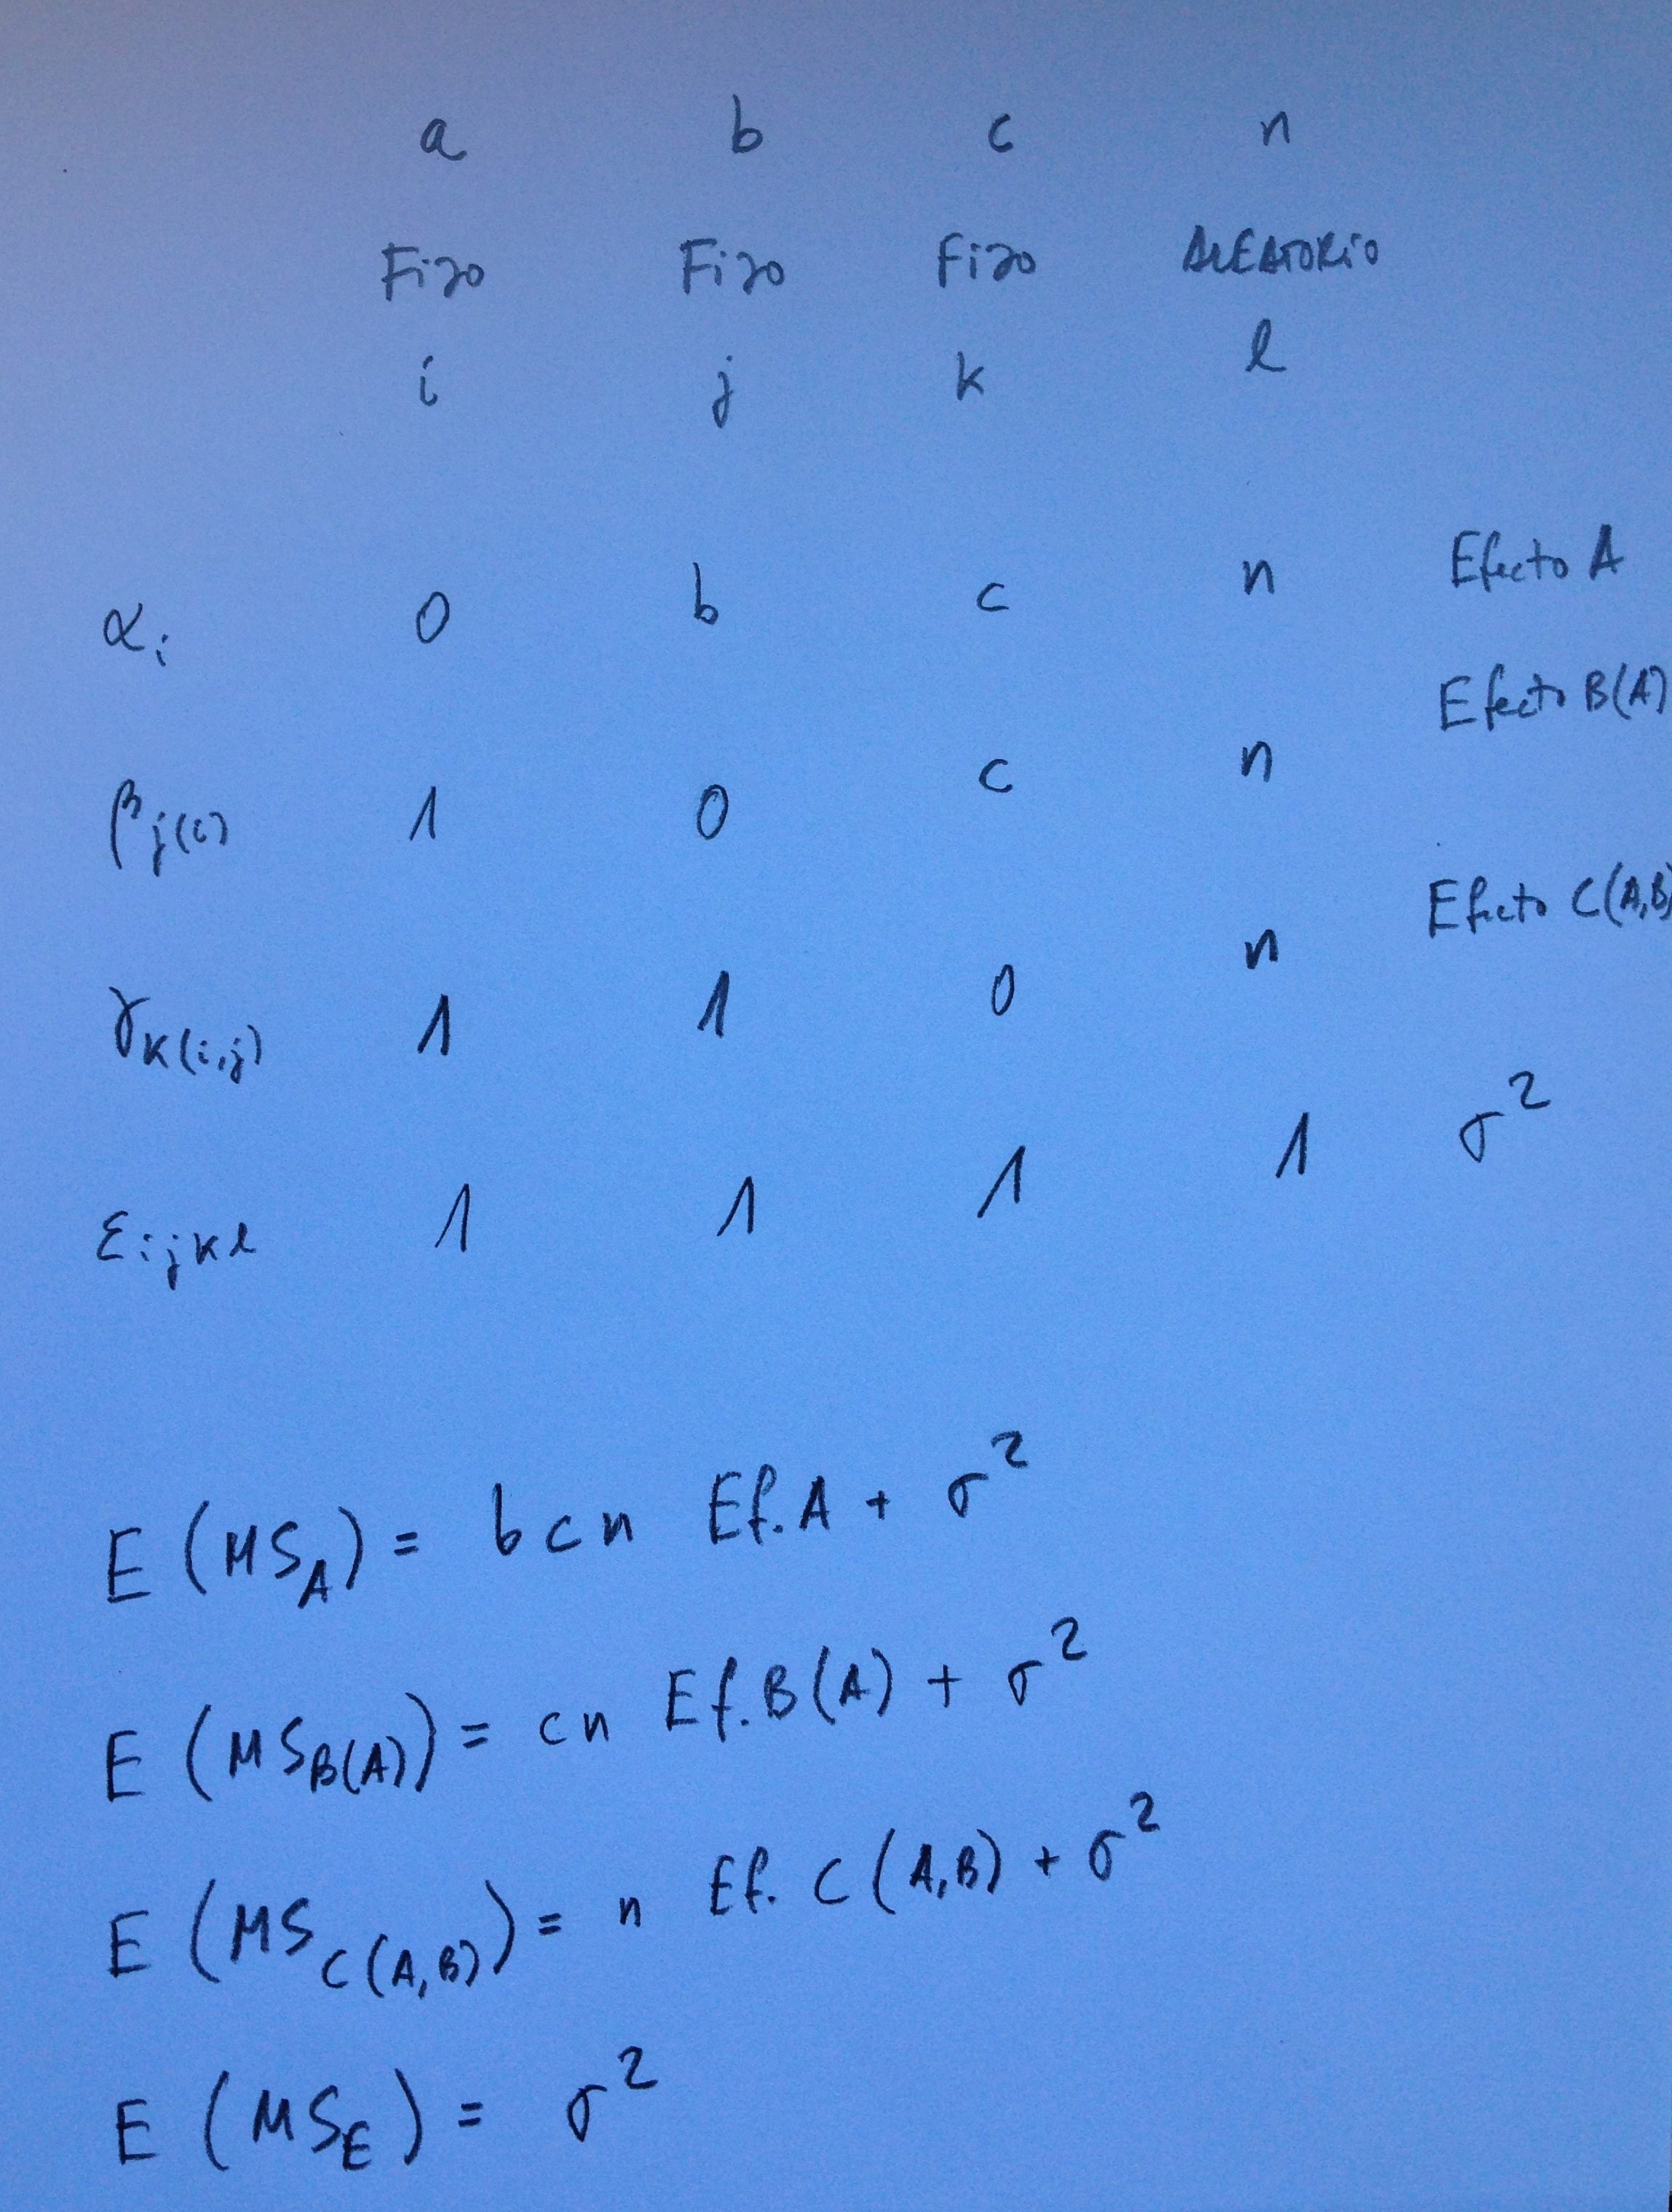 a b c n
Fijo Fijo Fijo ALEATORIO
i j k l
αi 0 b c n Efecto A
βj(i) 1 0 c n Efecto B(A)
γk(i,j) 1 1 0 n Efecto C(A,B)
εijkl 1 1 1 1 σ²
E (MS_A) = b c n Ef. A + σ²
E (MS_B(A)) = c n Ef. B(A) + σ²
E (MS_C(A,B)) = n Ef. C(A,B) + σ²
E (MS_E) = σ²